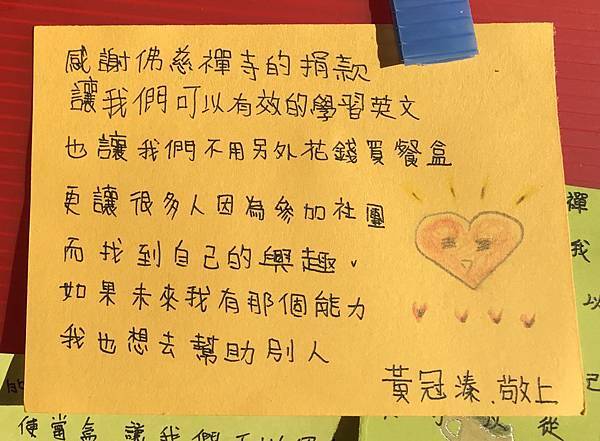 感謝佛慈禪寺的捐款
讓我們可以有效的學習英文
也讓我們不用另外花錢買餐盒
更讓很多人因為參加社團
而找到自己的興趣。
如果未來我有那個能力
我也想去幫助別人
黃冠溱 敬上
禪
我
以
己
從
便當盒 讓我們不以